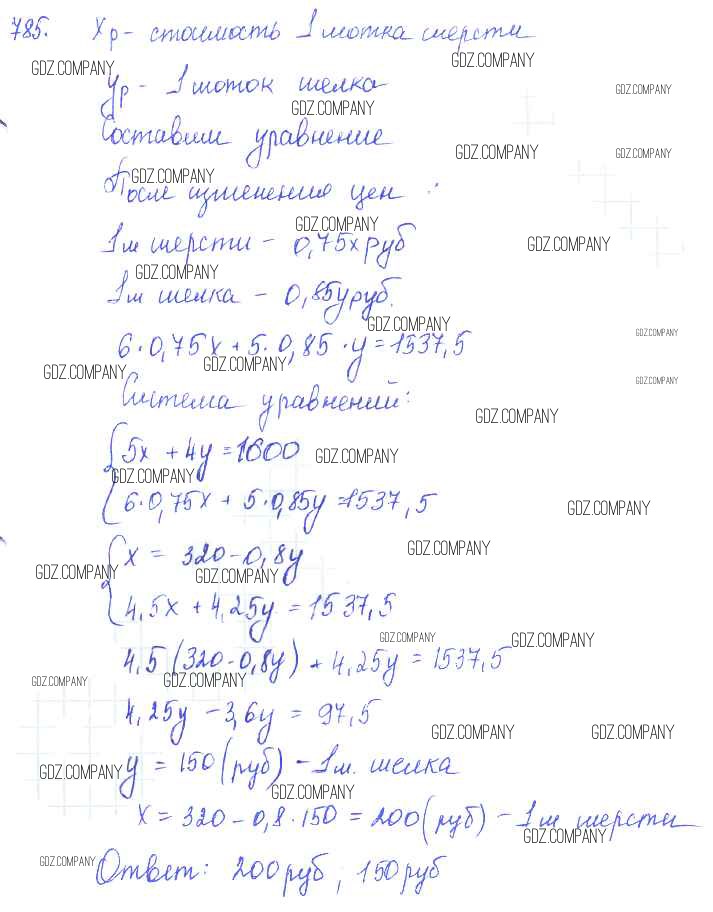 785. Xр - стоимость 1 мотка шерсти
GDZ.COMPANY GDZ.COMPANY
Ур - 1 моток шелка
GDZ.COMPANY GDZ.COMPANY
Составим уравнение
GDZ.COMPANY GDZ.COMPANY
GDZ.COMPANY
После изменения цен :
GDZ.COMPANY
1м шерсти - 0,75x руб
GDZ.COMPANY
GDZ.COMPANY
1м шелка - 0,85y руб.
GDZ.COMPANY GDZ.COMPANY
6·0,75x + 5·0,85·y = 1537,5
GDZ.COMPANY GDZ.COMPANY GDZ.COMPANY
Система уравнений:
GDZ.COMPANY
5x + 4y = 1600 GDZ.COMPANY
GDZ.COMPANY
6·0,75x + 5·0,85y = 1537,5
GDZ.COMPANY
x = 320 - 0,8y GDZ.COMPANY
GDZ.COMPANY GDZ.COMPANY
4,5x + 4,25y = 1537,5
GDZ.COMPANY GDZ.COMPANY
4,5(320 - 0,8y) + 4,25y = 1537,5
GDZ.COMPANY GDZ.COMPANY
4,25y - 3,6y = 97,5
GDZ.COMPANY GDZ.COMPANY
GDZ.COMPANY y = 150 (руб) - 1м. шелка
GDZ.COMPANY
x = 320 - 0,8·150 = 200 (руб) - 1м шерсти
GDZ.COMPANY
GDZ.COMPANY Ответ: 200 руб ; 150 руб